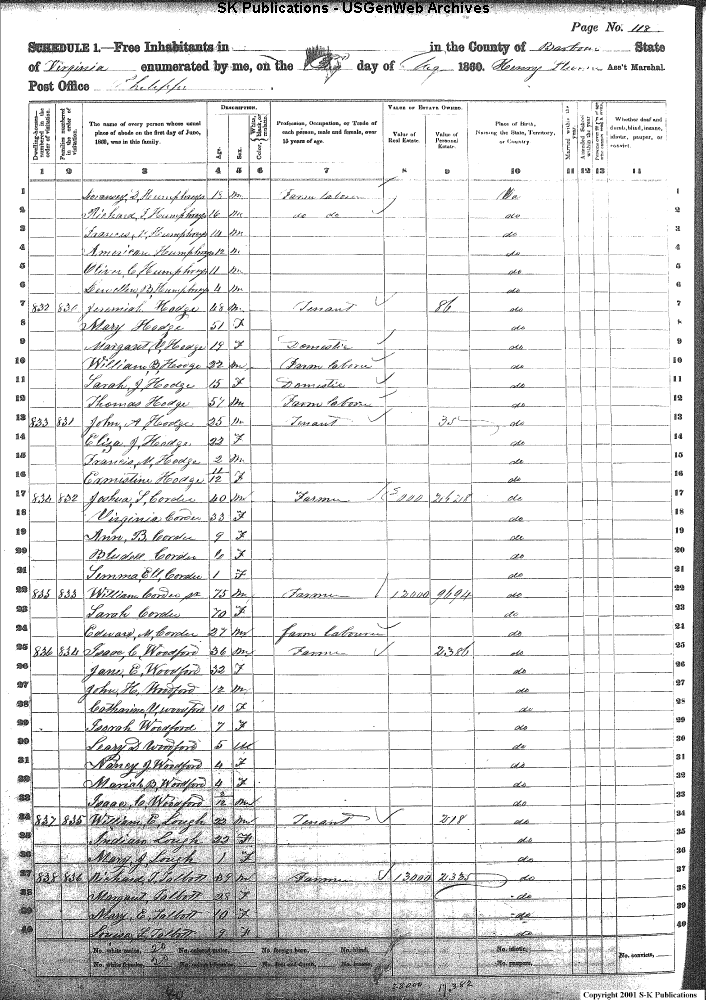 SK Publications - USGenWeb Archives
Page No. 118
SCHEDULE 1.—Free Inhabitants in in the County of Barbour State
of Virginia enumerated by me, on the day of Aug 1860. Henry Ass't Marshal.
Post Office Philippi
DESCRIPTION. VALUE OF ESTATE OWNED.
Dwelling-houses—numbered in the order of visitation. Families numbered in the order of visitation. The name of every person whose usual place of abode on the first day of June, 1860, was in this family. Age. Sex. Color, Profession, Occupation, or Trade of each person, male and female, over 15 years of age. Value of Real Estate. Value of Personal Estate. Place of Birth, Naming the State, Territory, or Country Married within the year. Whether deaf and dumb, blind, insane, idiotic, pauper, or convict.
1 2 3 4 5 6 7 8 9 10 11 12 13 14
1 Humphreys 18 m Farm laborer Va 1
2 Richard Humphreys 16 m do do do 2
3 Francis Humphreys 14 m do 3
4 American Humphreys 12 m do 4
5 Oliver C Humphreys 11 m do 5
6 Lewellen B Humphreys 4 m do 6
7 832 831 Jeremiah Hodge 48 m Tenant 86 do 7
8 Mary Hodge 51 F do 8
9 Margaret V Hodge 19 F Domestic do 9
10 William B Hodge 22 m Farm laborer do 10
11 Sarah J Hodge 15 F Domestic do 11
12 Thomas Hodge 57 m Farm laborer do 12
13 833 831 John A Hodge 25 m Tenant 35 do 13
14 Eliza J Hodge 22 F do 14
15 Francis M Hodge 2 m do 15
16 Ermestine Hodge 11/12 F do 16
17 834 832 Joshua S Corder 40 m Farmer 2628 do 17
18 Virginia Corder 33 F do 18
19 Ann B Corder 9 F do 19
20 Bludell Corder 6 F do 20
21 Corder 1 F do 21
22 835 833 William Corder sr 75 m Farmer 13000 9694 do 22
23 Sarah Corder 70 F do 23
24 Edward M Corder 27 m farm labourer do 24
25 836 834 Isaac C Woodford 36 m Farmer 2386 do 25
26 Jane E Woodford 32 F do 26
27 John H Woodford 12 m do 27
28 Catharine V woodford 10 F do 28
29 Woodford 7 F do 29
30 Woodford 5 M do 30
31 Nancy J Woodford 4 F do 31
32 Mariah B Woodford 4 F do 32
33 Isaac C Woodford 2/12 m do 33
34 837 835 William E Lough 22 m Tenant 218 do 34
35 Indian Lough 22 F do 35
36 Mary J Lough 1 F do 36
37 838 836 Richard T Talbott 39 m Farmer 13000 2335 do 37
38 Margaret Talbott 28 F do 38
39 Mary E Talbott 10 F do 39
40 Louisa L Talbott 9 F do 40
No. white males, 20 No. colored males, No. foreign born, No. blind, No. idiotic, No. convicts,
No. white females, 20 No. colored females, No. deaf and dumb, No. insane, No. paupers,
28000 17,382
Copyright 2001 S-K Publications